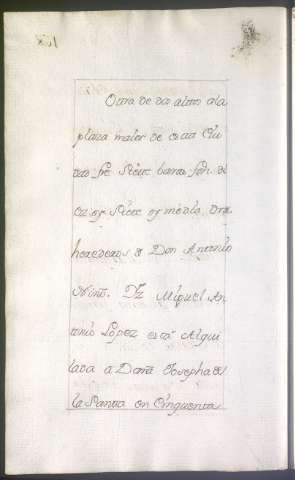 Otra de dos altos a la
plaza maior de esta Ciu
dad fte Siete baras fon. di
ez y Siete y media, Dra
herederos de Don Antonio
Izq. Miguel An
tonio Lopez está Alqui
lada a Doña Josepha de
la Panda en Cinquenta